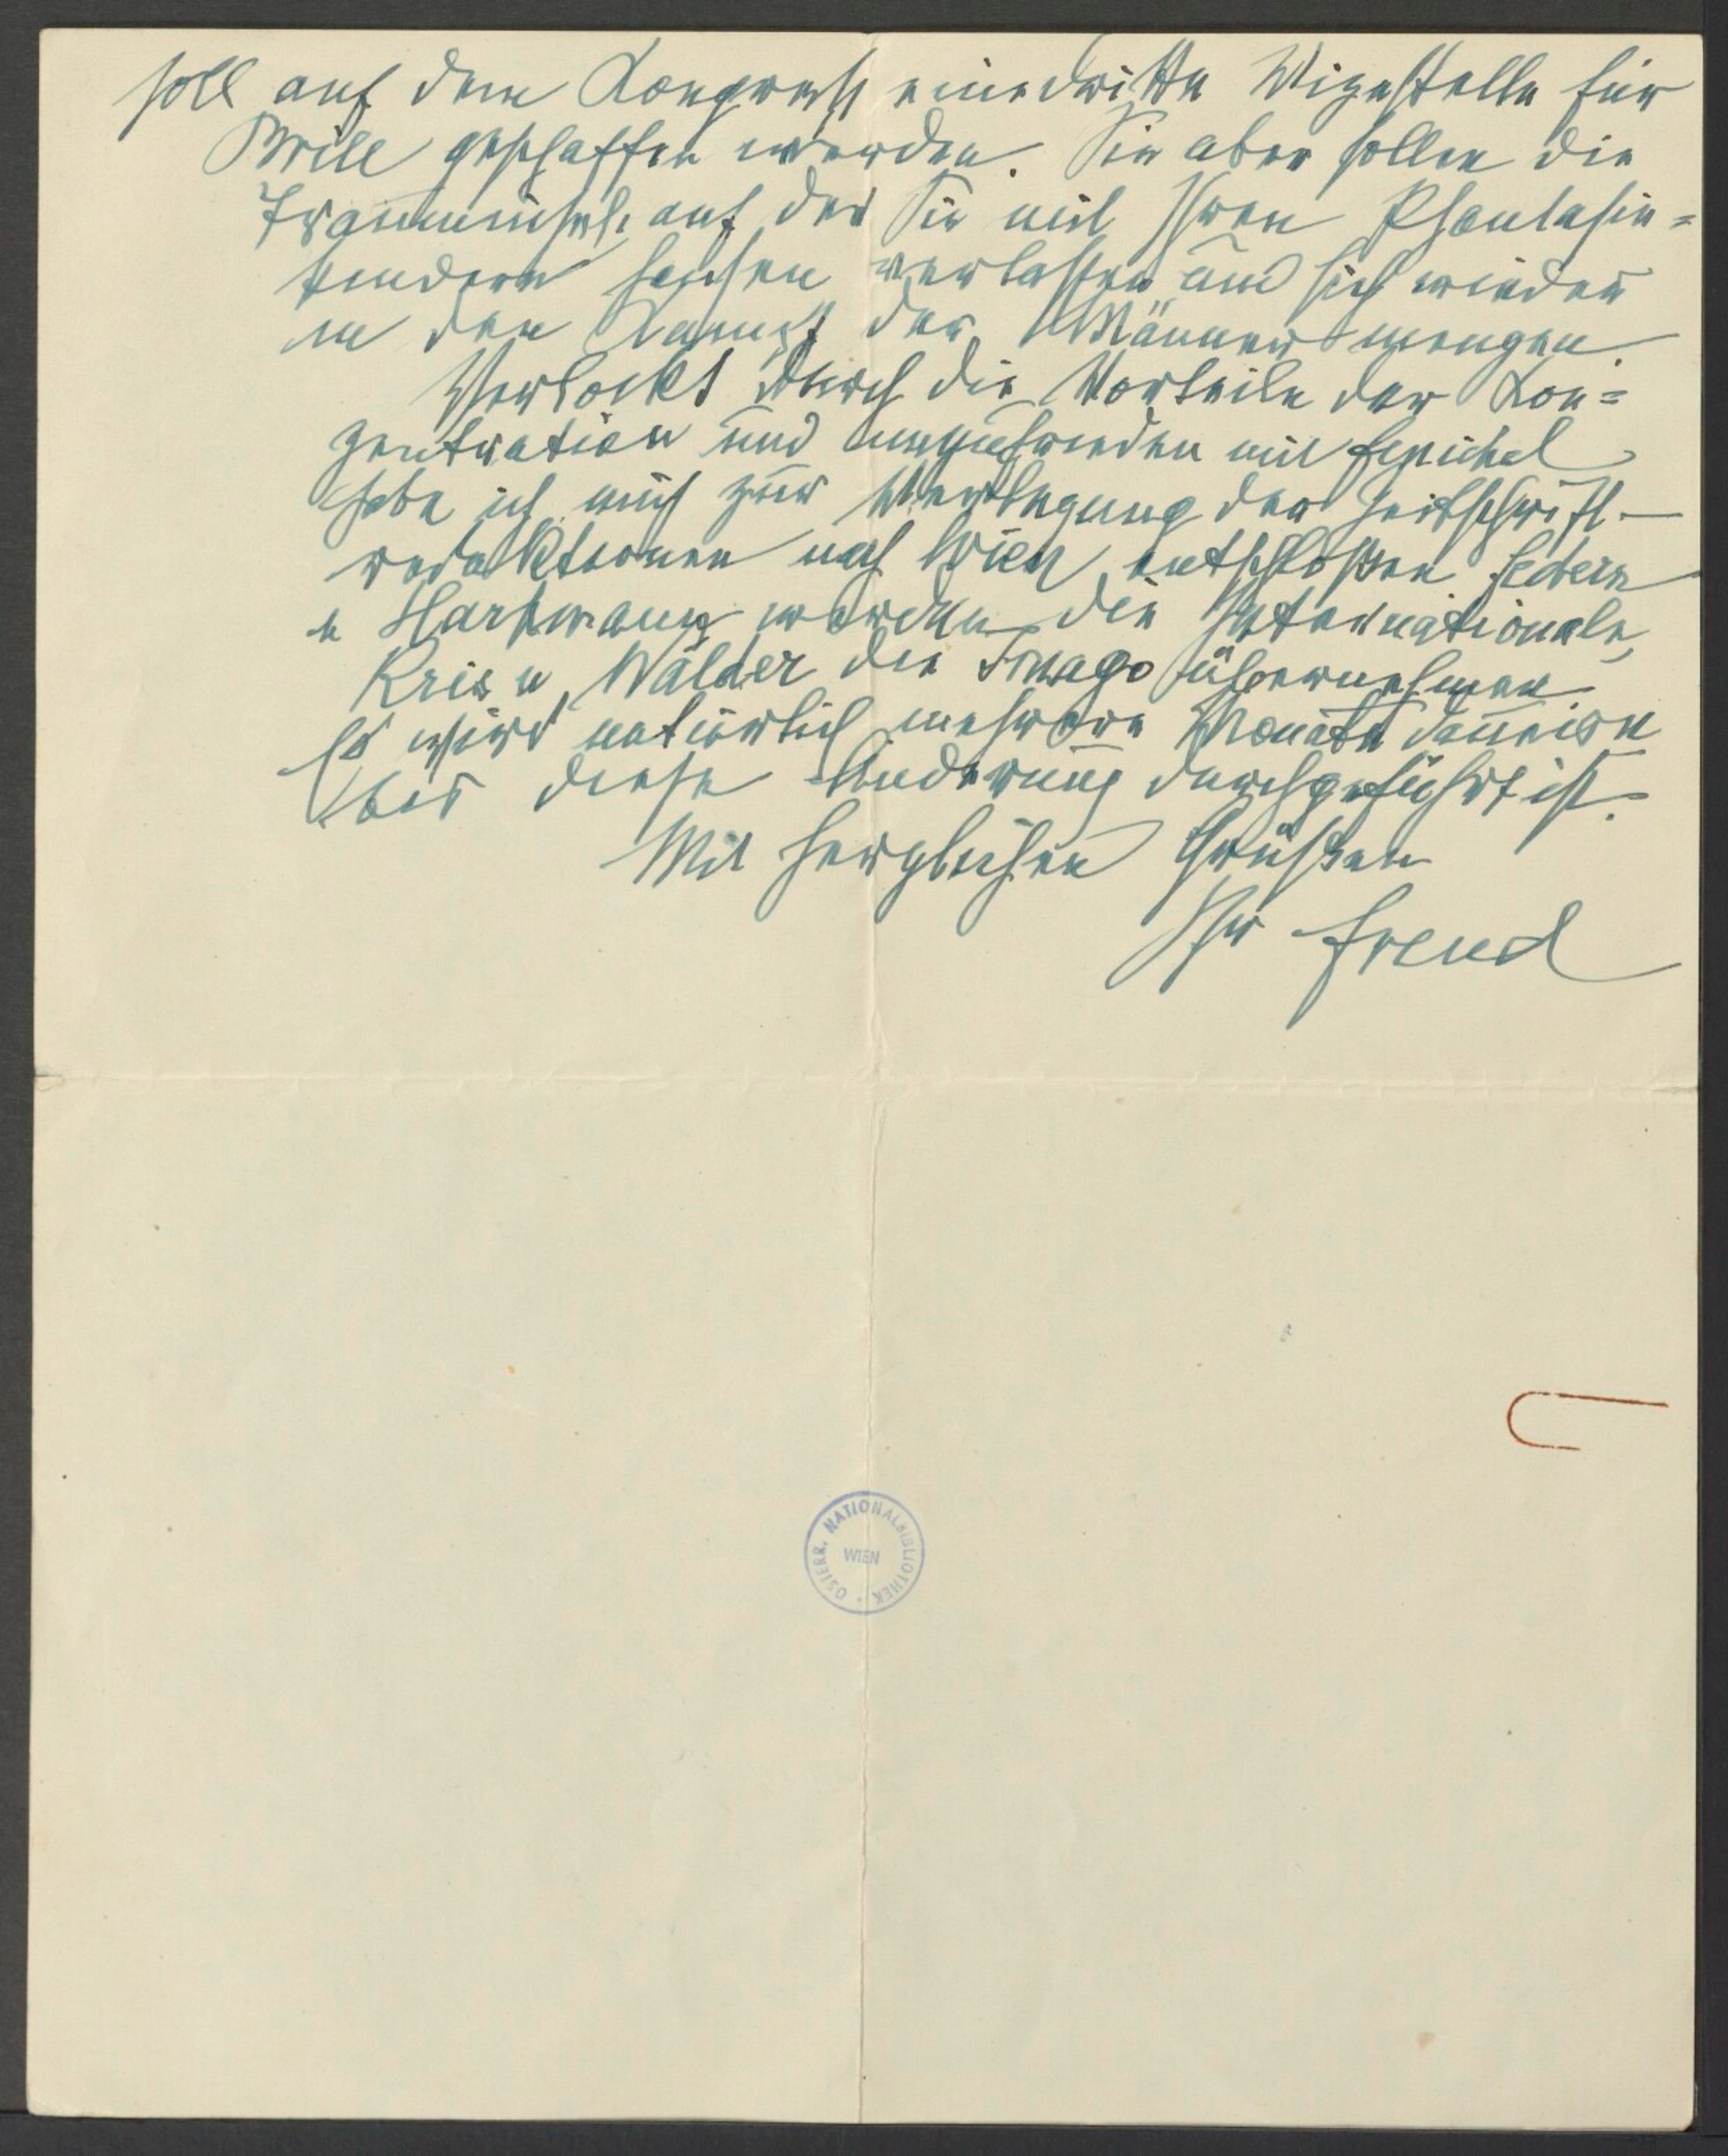 soll auf dem Kongress eine dritte Vizestelle für
Brill geschaffen werden. Sie aber sollen die
Trauminsel, auf der Sie mit Ihren Phantasie=
kindern hausen verlassen und sich wieder
in den Kampf der Männer mengen.
Verlockt durch die Vorteile der Kon=
zentration und unzufrieden mit Fenichel
habe ich mich zur Verlegung der Zeitschrift-
redaktionen nach Wien entschloßen. Federn
u Hartmann werden die Internationale,
Kris u Wälder die Imago übernehmen.
Es wird natürlich mehrere Monate dauern
bis diese Änderung durchgeführt ist.
Mit herzlichen Grüßen
Ihr Freud
ÖSTERR. NATIONALBIBLIOTHEK
WIEN